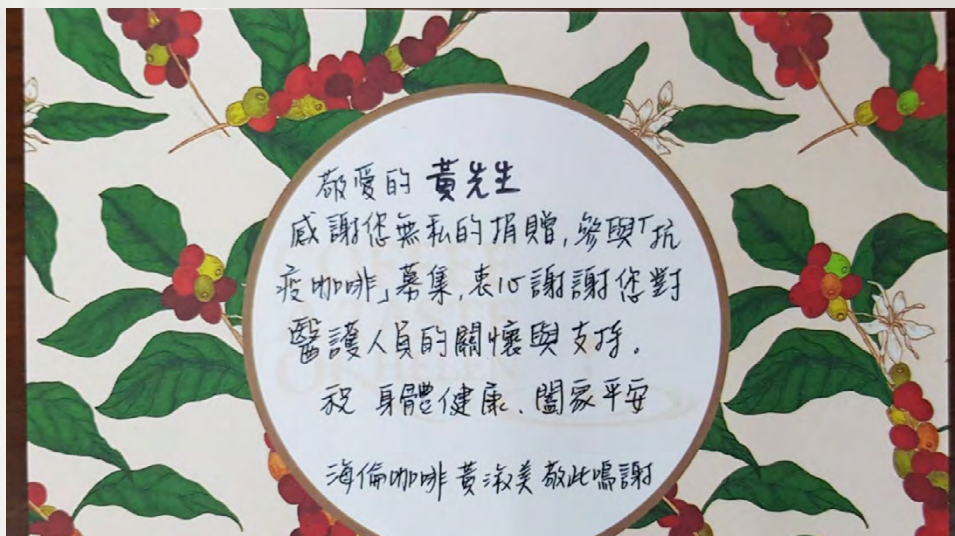 敬愛的 黃先生
感謝您無私的捐贈,參與「抗
疫咖啡」募集,衷心謝謝您對
醫護人員的關懷與支持。
祝 身體健康、闔家平安
海倫咖啡 黃淑美 敬此鳴謝